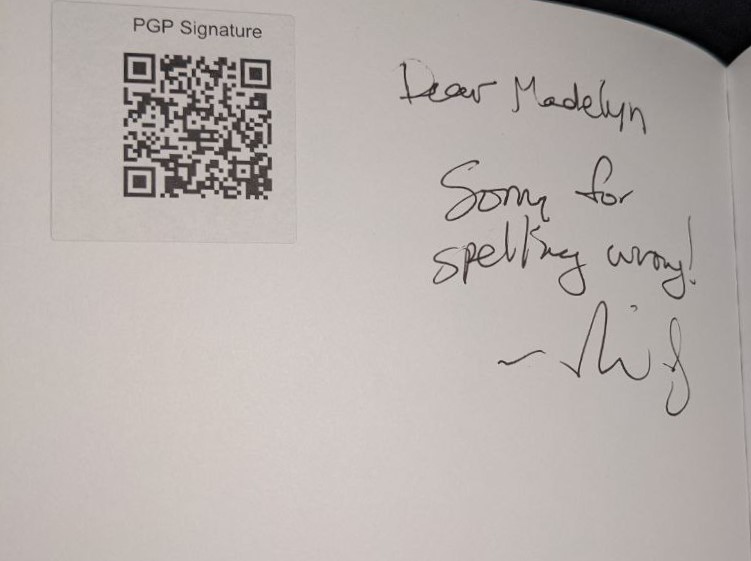 PGP Signature
Dear Madelyn
Sorry for
spelling wrong!